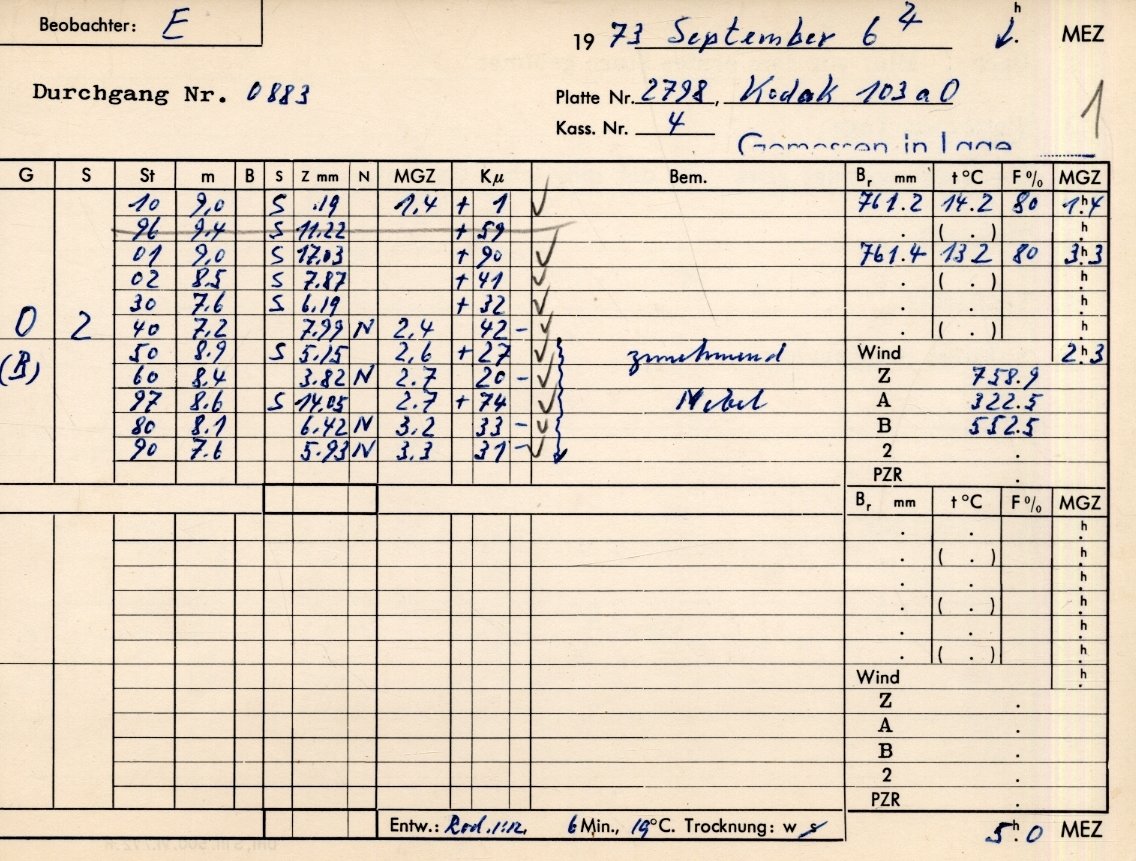 Beobachter: E
19 73 September 6 4 h MEZ
Durchgang Nr. 0883
Platte Nr. 2798, Kodak 103 a O
Kass. Nr. 4
1
Gemessen in Lage
G S St m B S Z mm N MGZ Kμ Bem. Br mm t °C F % MGZ
10 9,0 S .19 1,4 + 1 ✓ 761.2 14.2 80 1h.4
96 9.4 S 11.22 + 59 . ( . ) h.
01 9,0 S 17.03 + 90 ✓ 761.4 13 2 80 3h.3
02 8.5 S 7.87 + 41 ✓ . ( . ) h.
30 7.6 S 6.19 + 32 ✓ . . h.
0 2 40 7.2 7.99 N 2,4 42 – ✓ . ( . ) h.
(B) 50 8.9 S 5.15 2,6 + 27 ✓ zunehmend Wind 2h.3
60 8.4 3.82 N 2.7 20 – ✓ Z 758.9
97 8.6 S 14.05 2.7 + 74 ✓ Nebel A 322.5
80 8.1 6.42 N 3.2 33 – ✓ B 552.5
90 7.6 5.93 N 3.3 31 – ✓ 2 .
PZR .
Br mm t °C F % MGZ
. . h.
. ( . ) h.
. . h.
. ( . ) h.
. . h.
. ( . ) h.
Wind h.
Z .
A .
B .
2 .
PZR .
Entw.: Rod. 1:12, 6 Min., 19°C. Trocknung: w s
5h.0 MEZ